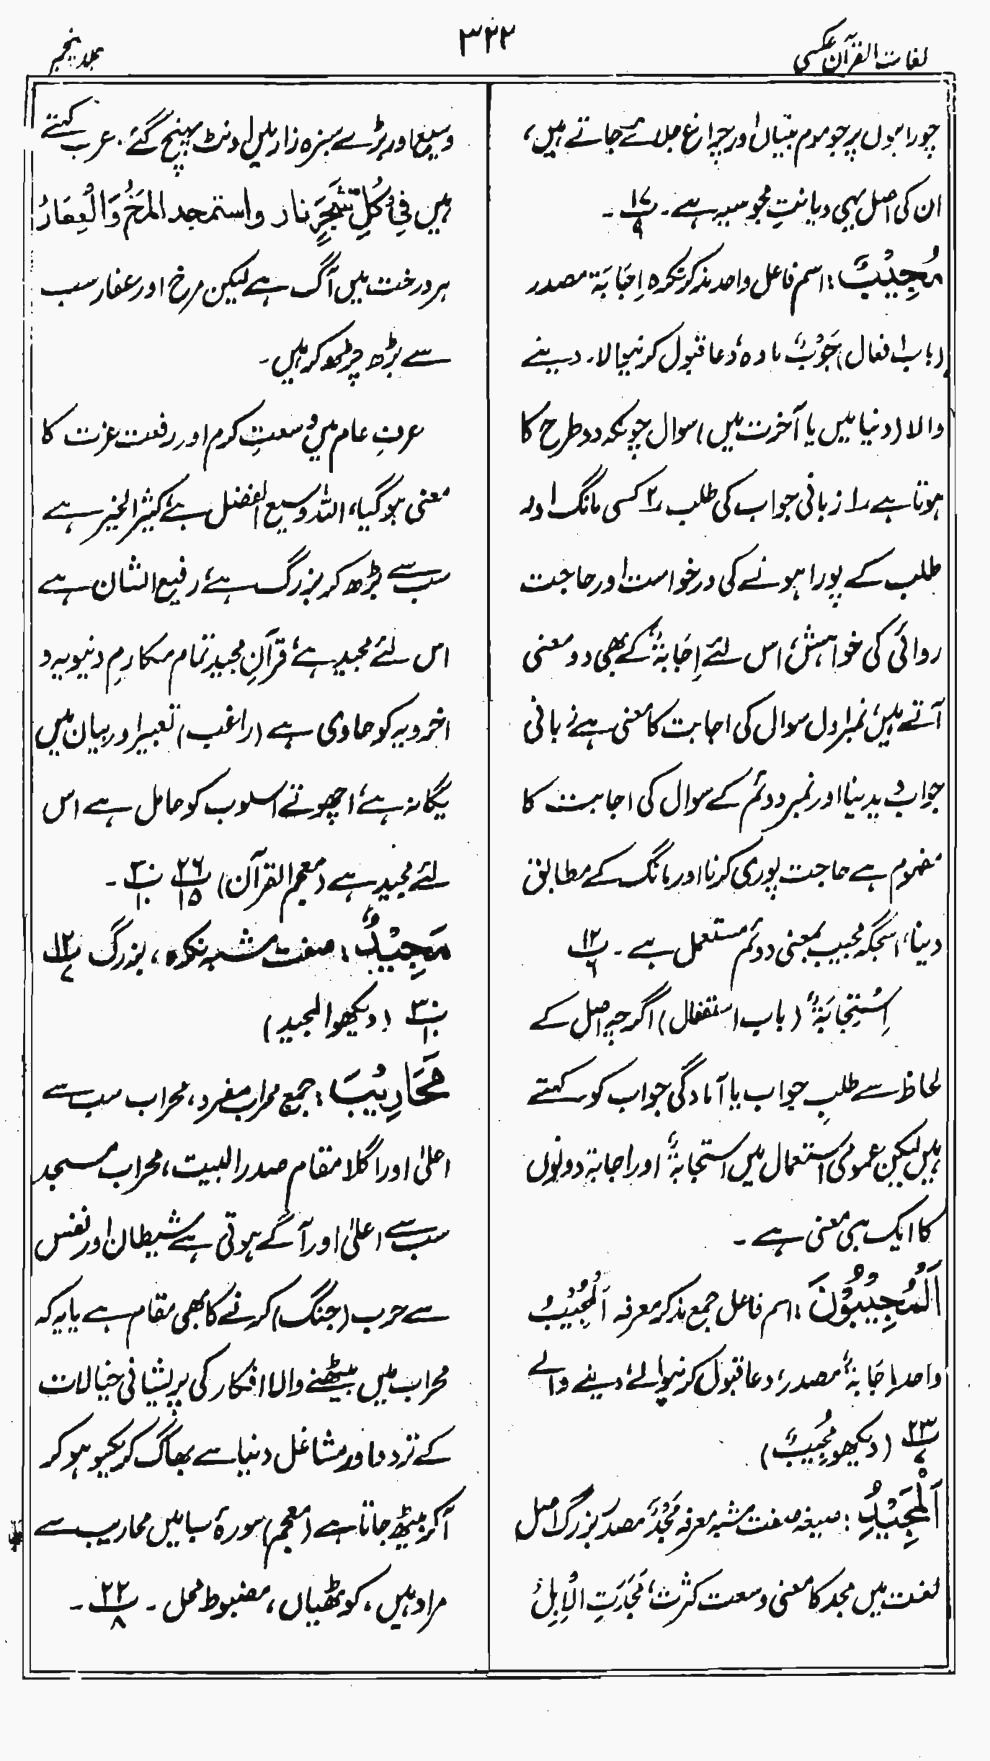 لغات القرآن عکسی
۳۲۲
جلد پنجم
چوراہوں پر جو موم بتیاں اور چراغ جلائے جاتے ہیں،
ان کی اصل یہی دیانتِ مجوسیہ ہے۔ ۱۷/۹ ۔
مُجِيْبٌ: اسم فاعل واحد مذکر نکرہ اِجَابَة مصدر
(باب افعال) جَوْبٌ مادہ، دعا قبول کرنیوالا۔ دینے
والا (دنیا میں یا آخرت میں) سوال چونکہ دو طرح کا
ہوتا ہے ۱؎ زبانی جواب کی طلب ۲؎ کسی مانگ اور
طلب کے پورا ہونے کی درخواست اور حاجت
روائی کی خواہش، اس لئے اِجَابَةٌ کے بھی دو معنی
آتے ہیں، نمبر اول سوال کی اجابت کا معنی ہے زبانی
جواب دیدینا اور نمبر دوئم کے سوال کی اجابت کا
مفہوم ہے حاجت پوری کرنا اور مانگ کے مطابق
دینا، اسجگہ مجیب بمعنی دوئم مستعمل ہے۔ ۱۲/۶
اِسْتِجَابَةٌ (باب استفعال) اگرچہ اصل کے
لحاظ سے طلبِ جواب یا آمادگی جواب کو کہتے
ہیں لیکن عمومی استعمال میں استجابۃٌ اور اجابۃ دونوں
کا ایک ہی معنی ہے ۔
اَلْمُجِيْبُوْنَ: اسم فاعل جمع مذکر معرفہ اَلْمُجِيْبُ
واحد اِجَابَةٌ مصدر، دعا قبول کرنیوالے، دینے والے
۲۳/۷ (دیکھو مُجِيْبٌ)
اَلْمَجِيْدُ: صیغہ صفت مشبہ معرفہ مَجْدٌ مصدر بزرگ اصل
لغت میں مجد کا معنی وسعت کثرت، مَجَدَتِ الْاِبِلُ
وسیع اور بڑے سبزہ زار میں اونٹ پہنچ گئے۔ عرب کہتے
ہیں فِيْ كُلِّ شَجَرٍ نار واستمجد المَرْخُ وَالْعَفَارُ
ہر درخت میں آگ ہے لیکن مرخ اور عفار سب
سے بڑھ چڑھ کر ہیں۔
عرفِ عام میں وسعتِ کرم اور رفعت عزت کا
معنی ہو گیا، اللہ وسیع الفضل ہے، کثیر الخیر ہے
سب سے بڑھ کر بزرگ ہے، رفیع الشان ہے
اس لئے مجید ہے، قرآن مجید تمام مکارمِ دنیویہ و
اخرویہ کو حاوی ہے (راغب) تعبیر اور بیان میں
یگانہ ہے، اچھوتے اسلوب کو حامل ہے اس
لئے مجید ہے (معجم القرآن) ۲۶/۱۵ ۳۰/۱۰ ۔
مَجِيْدٌ: صفت مشبہ نکرہ، بزرگ ۱۲/۷
۳۰/۱۰ (دیکھو المجید)
مَحَارِيْبَ: جمع محراب مفرد، محراب سب سے
اعلیٰ اور اگلا مقام صدر البیت، محراب مسجد
سب سے اعلیٰ اور آگے ہوتی ہے شیطان اور نفس
سے حرب (جنگ) کرنے کا بھی مقام ہے یا یہ کہ
محراب میں بیٹھنے والا افکار کی پریشانی خیالات
کے تردد اور مشاغل دنیا سے بھاگ کر یکسو ہو کر
آکر بیٹھ جاتا ہے (معجم) سورۂ سبا میں محاریب سے
مراد ہیں، کوٹھیاں، مضبوط محل ۔ ۲۲/۸ ۔